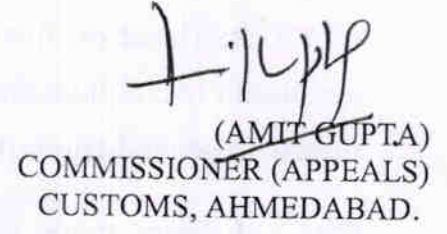 (AMIT GUPTA)
COMMISSIONER (APPEALS)
CUSTOMS, AHMEDABAD.